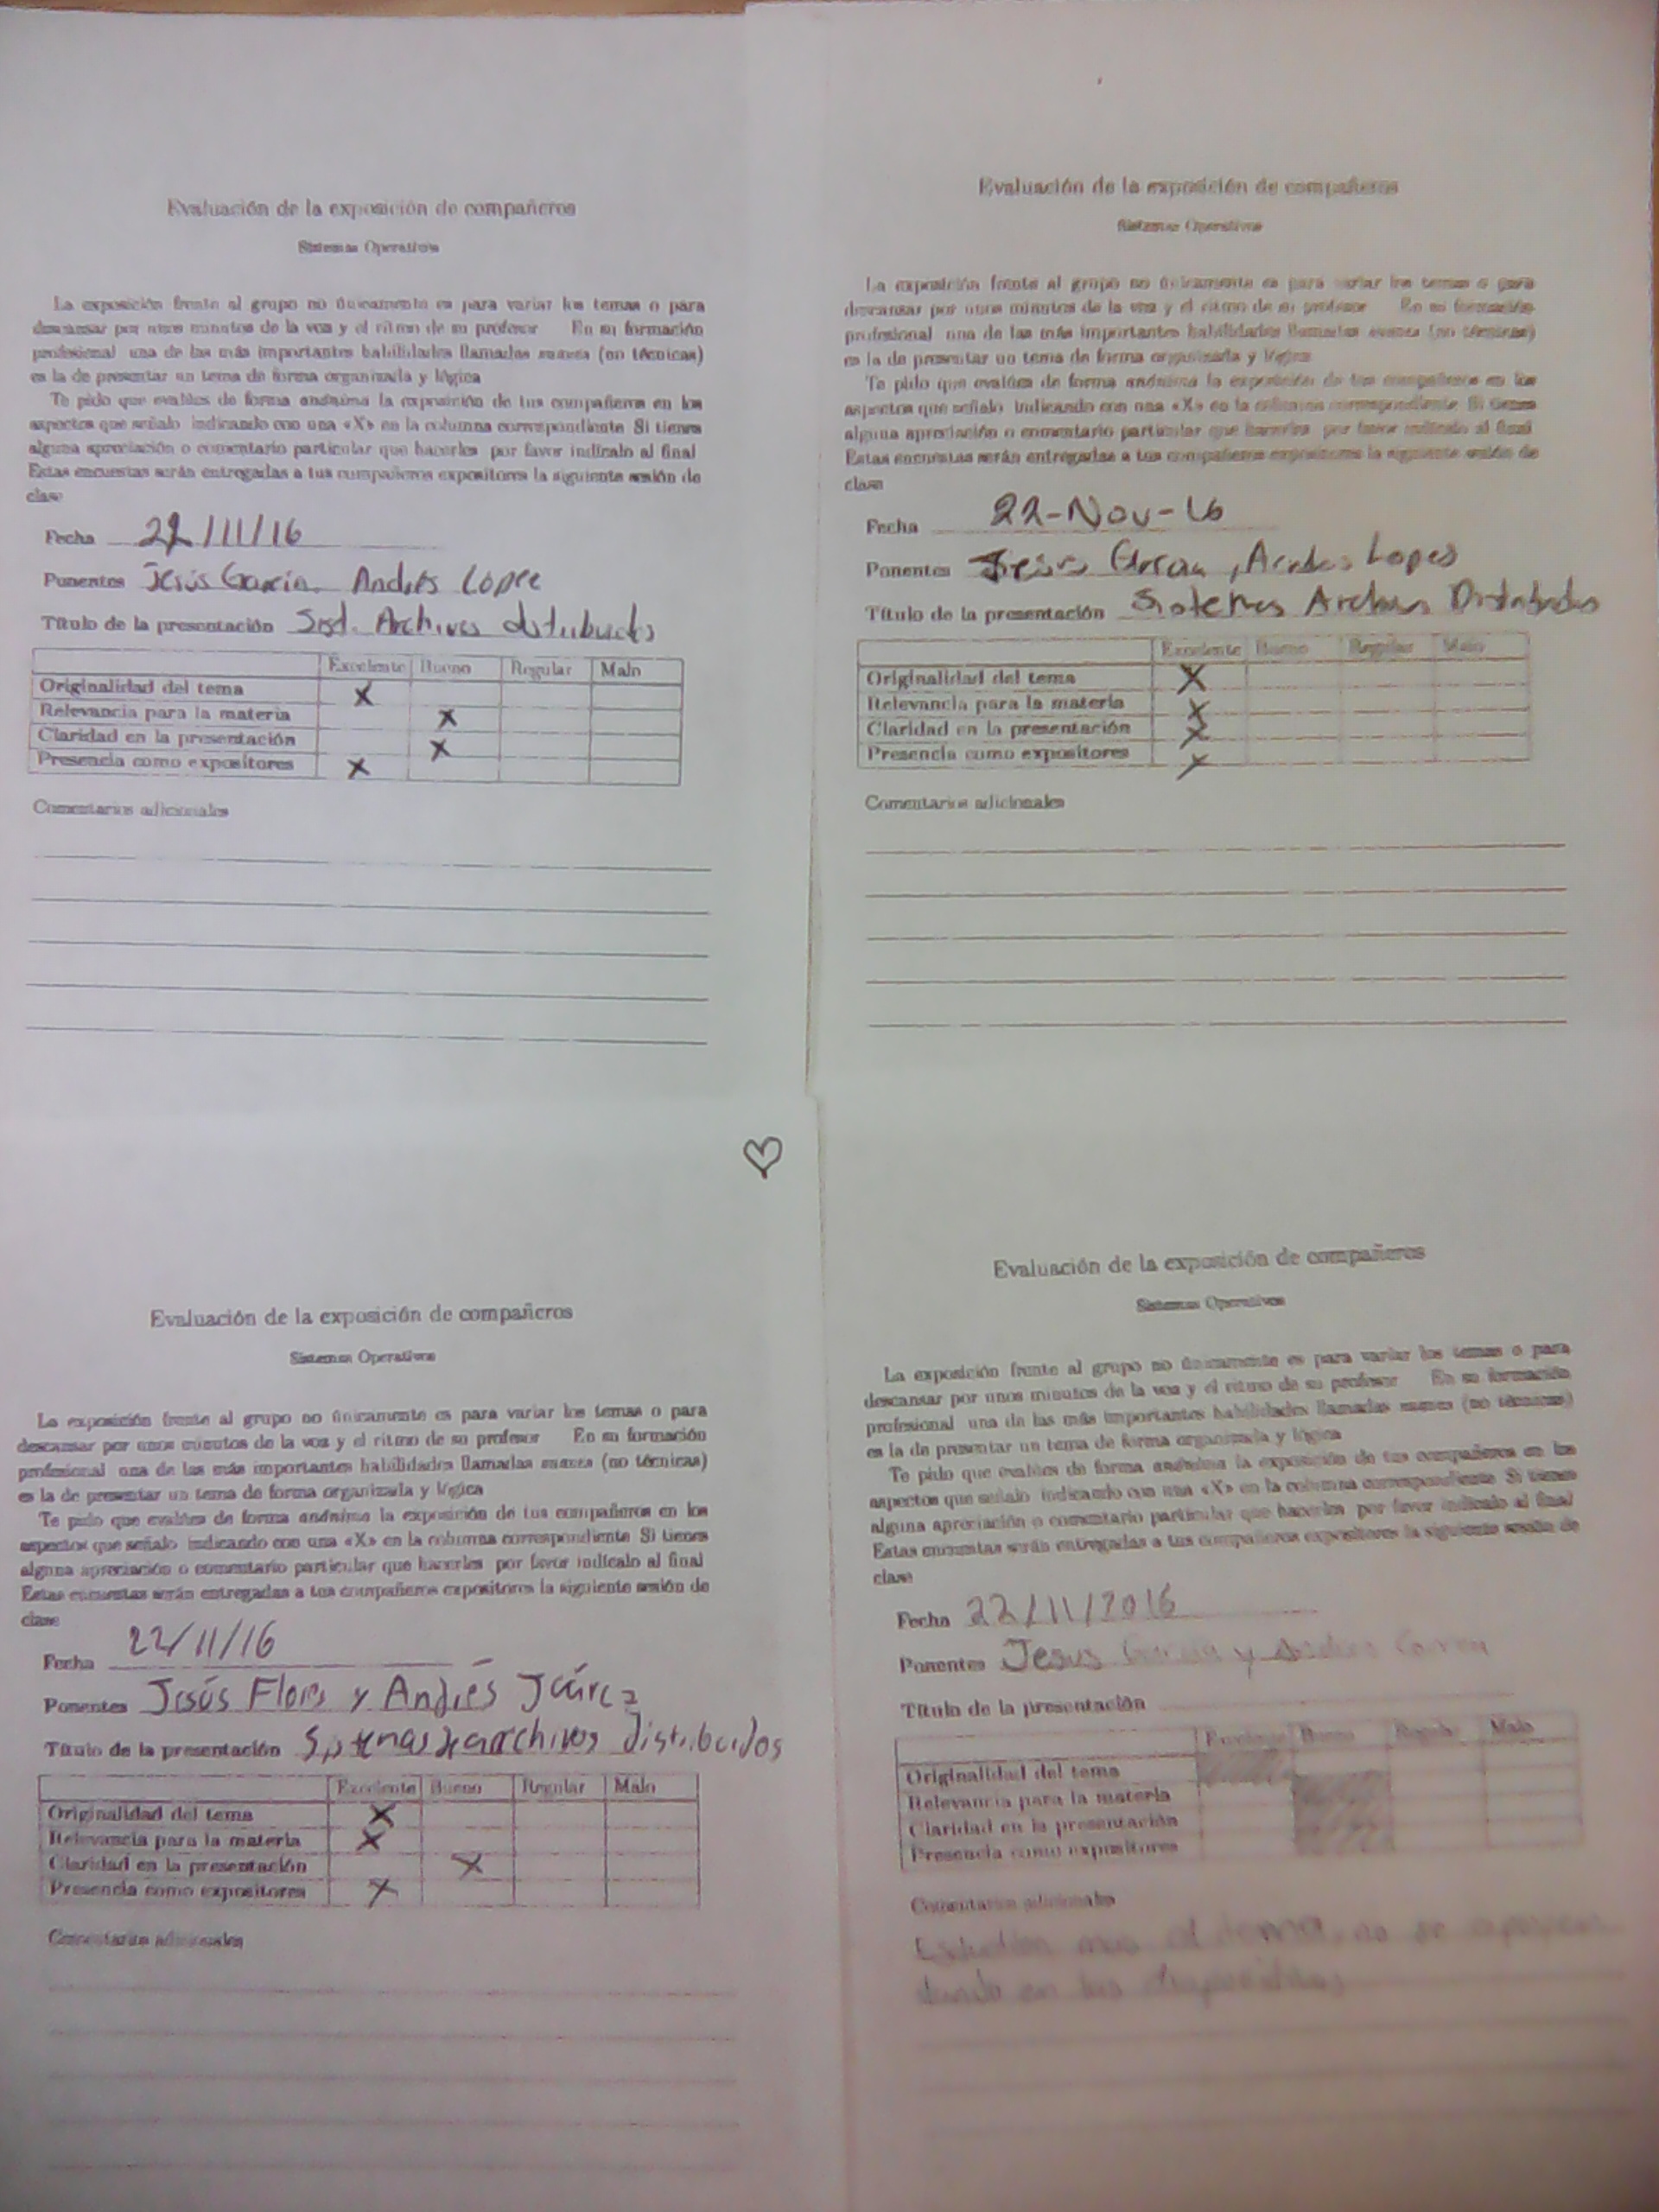 Evaluación de la exposición de compañeros
Sistemas Operativos
La exposición frente al grupo no únicamente es para variar los temas o para
descansar por unos minutos de la voz y el ritmo de su profesor En su formación
profesional una de las más importantes habilidades llamadas suaves (no técnicas)
es la de presentar un tema de forma organizada y lógica
Te pido que evalúes de forma anónima la exposición de tus compañeros en los
aspectos que señalo indicando con una «X» en la columna correspondiente Si tienes
alguna apreciación o comentario particular que hacerles por favor indícalo al final
Estas encuestas serán entregadas a tus compañeros expositores la siguiente sesión de
clase
Fecha 22/11/16
Ponentes Jesús García Andrés López
Título de la presentación Sist. Archivos distribuidos
Excelente Bueno Regular Malo
Originalidad del tema X
Relevancia para la materia X
Claridad en la presentación X
Presencia como expositores X
Comentarios adicionales
Evaluación de la exposición de compañeros
Sistemas Operativos
La exposición frente al grupo no únicamente es para variar los temas o para
descansar por unos minutos de la voz y el ritmo de su profesor En su formación
profesional una de las más importantes habilidades llamadas suaves (no técnicas)
es la de presentar un tema de forma organizada y lógica
Te pido que evalúes de forma anónima la exposición de tus compañeros en los
aspectos que señalo indicando con una «X» en la columna correspondiente Si tienes
alguna apreciación o comentario particular que hacerles por favor indícalo al final
Estas encuestas serán entregadas a tus compañeros expositores la siguiente sesión de
clase
Fecha 22-Nov-16
Ponentes Jesús , Lopes
Título de la presentación Sistemas
Excelente Bueno Regular Malo
Originalidad del tema X
Relevancia para la materia X
Claridad en la presentación X
Presencia como expositores X
Comentarios adicionales
Evaluación de la exposición de compañeros
Sistemas Operativos
La exposición frente al grupo no únicamente es para variar los temas o para
descansar por unos minutos de la voz y el ritmo de su profesor En su formación
profesional una de las más importantes habilidades llamadas suaves (no técnicas)
es la de presentar un tema de forma organizada y lógica
Te pido que evalúes de forma anónima la exposición de tus compañeros en los
aspectos que señalo indicando con una «X» en la columna correspondiente Si tienes
alguna apreciación o comentario particular que hacerles por favor indícalo al final
Estas encuestas serán entregadas a tus compañeros expositores la siguiente sesión de
clase
Fecha 22/11/16
Ponentes Jesús Flores y Andrés Juárez
Título de la presentación Sistemas de archivos distribuidos
Excelente Bueno Regular Malo
Originalidad del tema X
Relevancia para la materia X
Claridad en la presentación X
Presencia como expositores X
Comentarios adicionales
Evaluación de la exposición de compañeros
Sistemas Operativos
La exposición frente al grupo no únicamente es para variar los temas o para
descansar por unos minutos de la voz y el ritmo de su profesor En su formación
profesional una de las más importantes habilidades llamadas suaves (no técnicas)
es la de presentar un tema de forma organizada y lógica
Te pido que evalúes de forma anónima la exposición de tus compañeros en los
aspectos que señalo indicando con una «X» en la columna correspondiente Si tienes
alguna apreciación o comentario particular que hacerles por favor indícalo al final
Estas encuestas serán entregadas a tus compañeros expositores la siguiente sesión de
clase
Fecha 22/11/2016
Ponentes Jesus García y
Título de la presentación
Excelente Bueno Regular Malo
Originalidad del tema
Relevancia para la materia
Claridad en la presentación
Presencia como expositores
Comentarios adicionales
Estudien mas el tema, no se
en las diapositivas